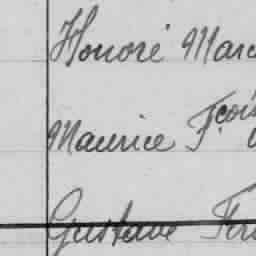 Honoré Marc
Maurice F.çois
Gustave Fer